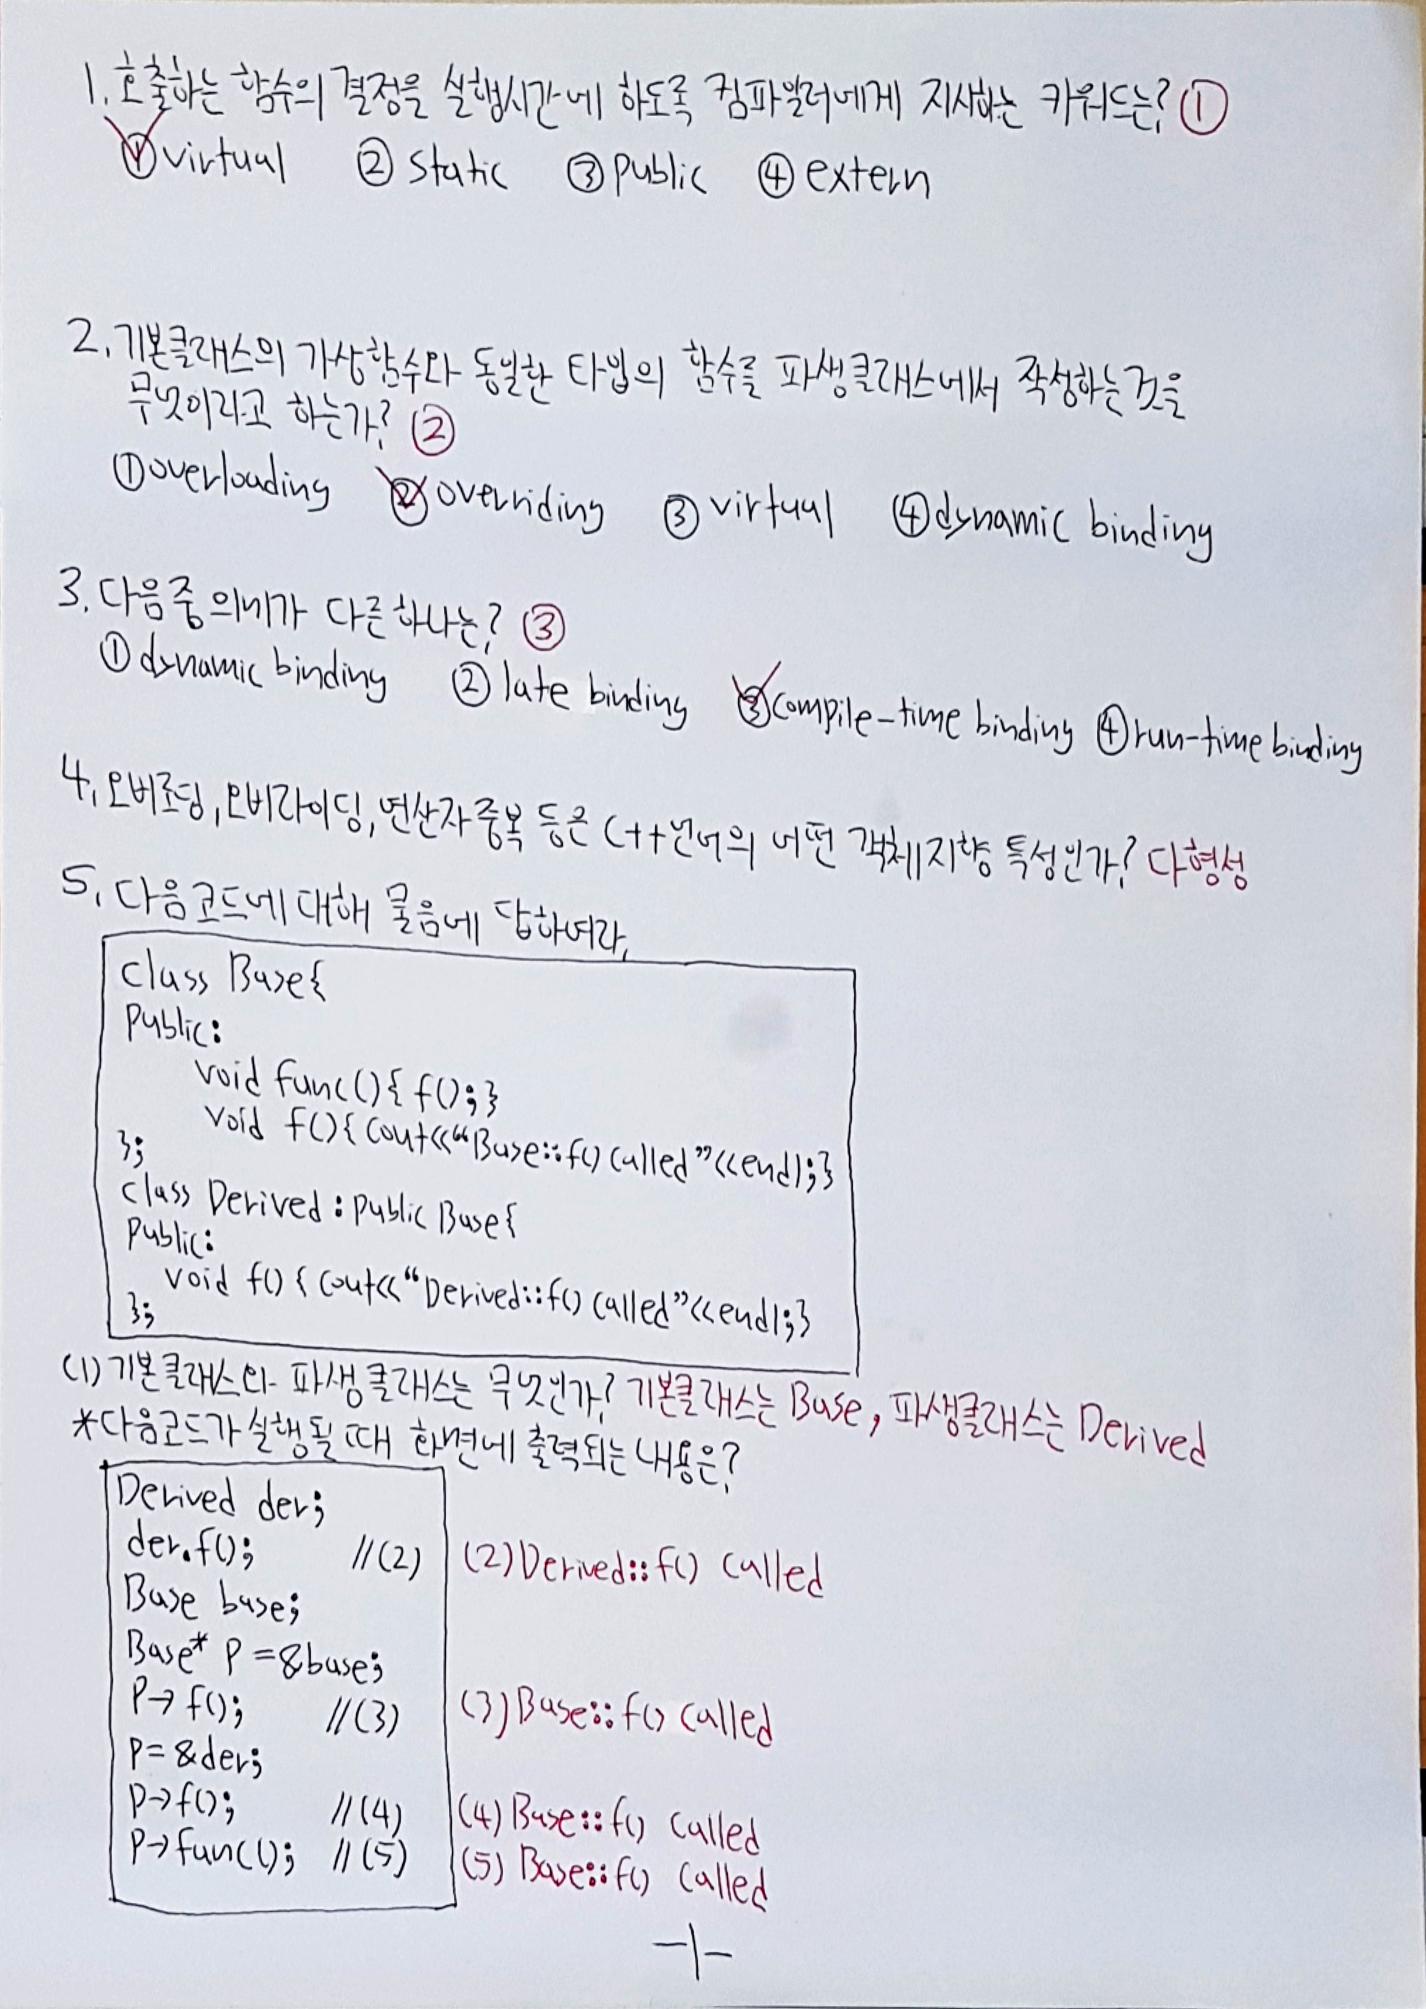 1. 호출하는 함수의 결정을 실행시간에 하도록 컴파일러에게 지시하는 키워드는? ①
① virtual ② static ③ public ④ extern
2. 기본클래스의 가상함수와 동일한 타입의 함수를 파생클래스에서 작성하는것을
무엇이라고 하는가? ②
① overloading ② overriding ③ virtual ④ dynamic binding
3. 다음중 의미가 다른 하나는? ③
① dynamic binding ② late binding ③ compile-time binding ④ run-time binding
4. 오버로딩, 오버라이딩, 연산자중복 등은 C++언어의 어떤 객체지향 특성인가? 다형성
5. 다음코드에 대해 물음에 답하여라.
class Base{
public:
void func(){ f(); }
void f(){ cout<<"Base::f() called"<<endl; }
};
class Derived : public Base{
public:
void f() { cout<<"Derived::f() called"<<endl; }
};
(1) 기본클래스와 파생클래스는 무엇인가? 기본클래스는 Base, 파생클래스는 Derived
*다음코드가 실행될 때 화면에 출력되는 내용은?
Derived der;
der.f(); //(2) (2) Derived::f() called
Base base;
Base* p = &base;
p->f(); //(3) (3) Base::f() called
p=&der;
p->f(); //(4) (4) Base::f() called
p->func(); //(5) (5) Base::f() called
-1-